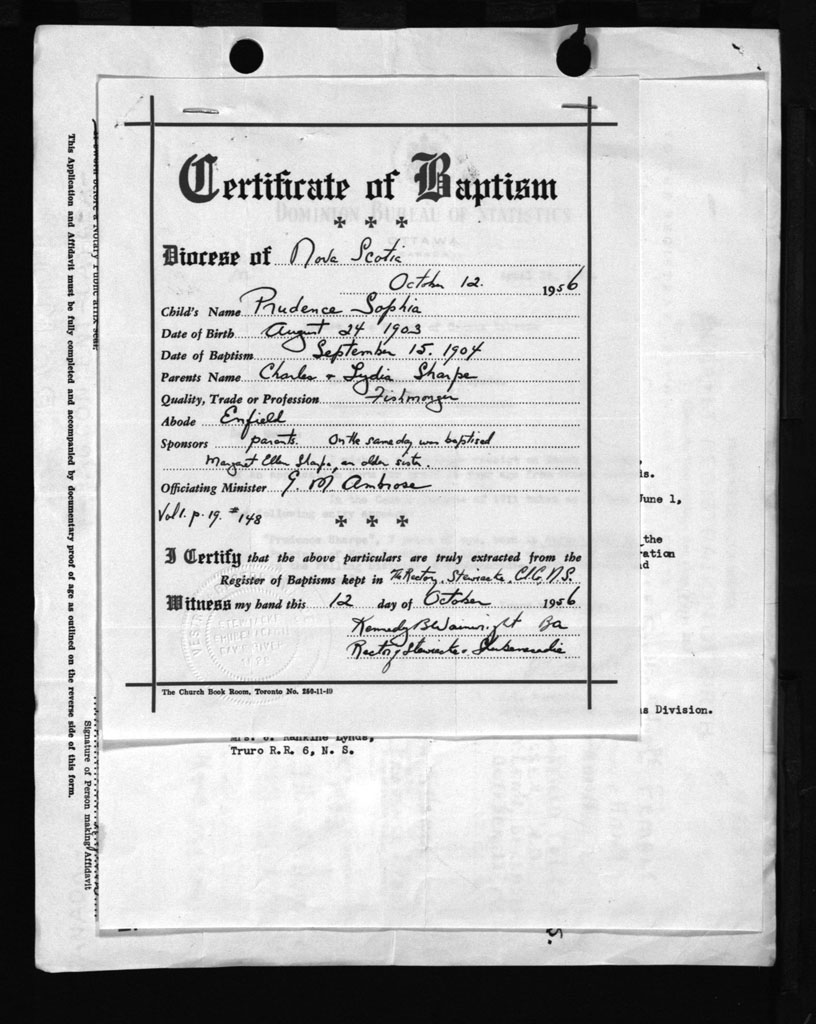 Certificate of Baptism
DOMINION BUREAU OF STATISTICS
OTTAWA
Diocese of Nova Scotia
October 12. 1956
Child's Name Prudence Sophia
Date of Birth August 24 1903
Date of Baptism September 15. 1904
Parents Name Charles + Lydia Sharpe
Quality, Trade or Profession Fishmonger
Abode Enfield
Sponsors parents. On the same day was baptised
Margaret Ellen Sharpe, an older sister.
Officiating Minister G. M Ambrose
Vol 1. p. 19. #148
I Certify that the above particulars are truly extracted from the
Register of Baptisms kept in The Rectory, Stewiacke, C/C, N.S.
Witness my hand this 12 day of October 1956
Kennedy B Wainwright Ba
Rectory Stewiacke + Shubenacadie
The Church Book Room, Toronto No. 260-11-49
s.
June 1,
the
ration
s Division.
Mrs. Rankine Lynds,
Truro R.R. 6, N. S.
This Application and Affidavit must be fully completed and accompanied by documentary proof of age as outlined on the reverse side of this form.
Signature of Person making Affidavit